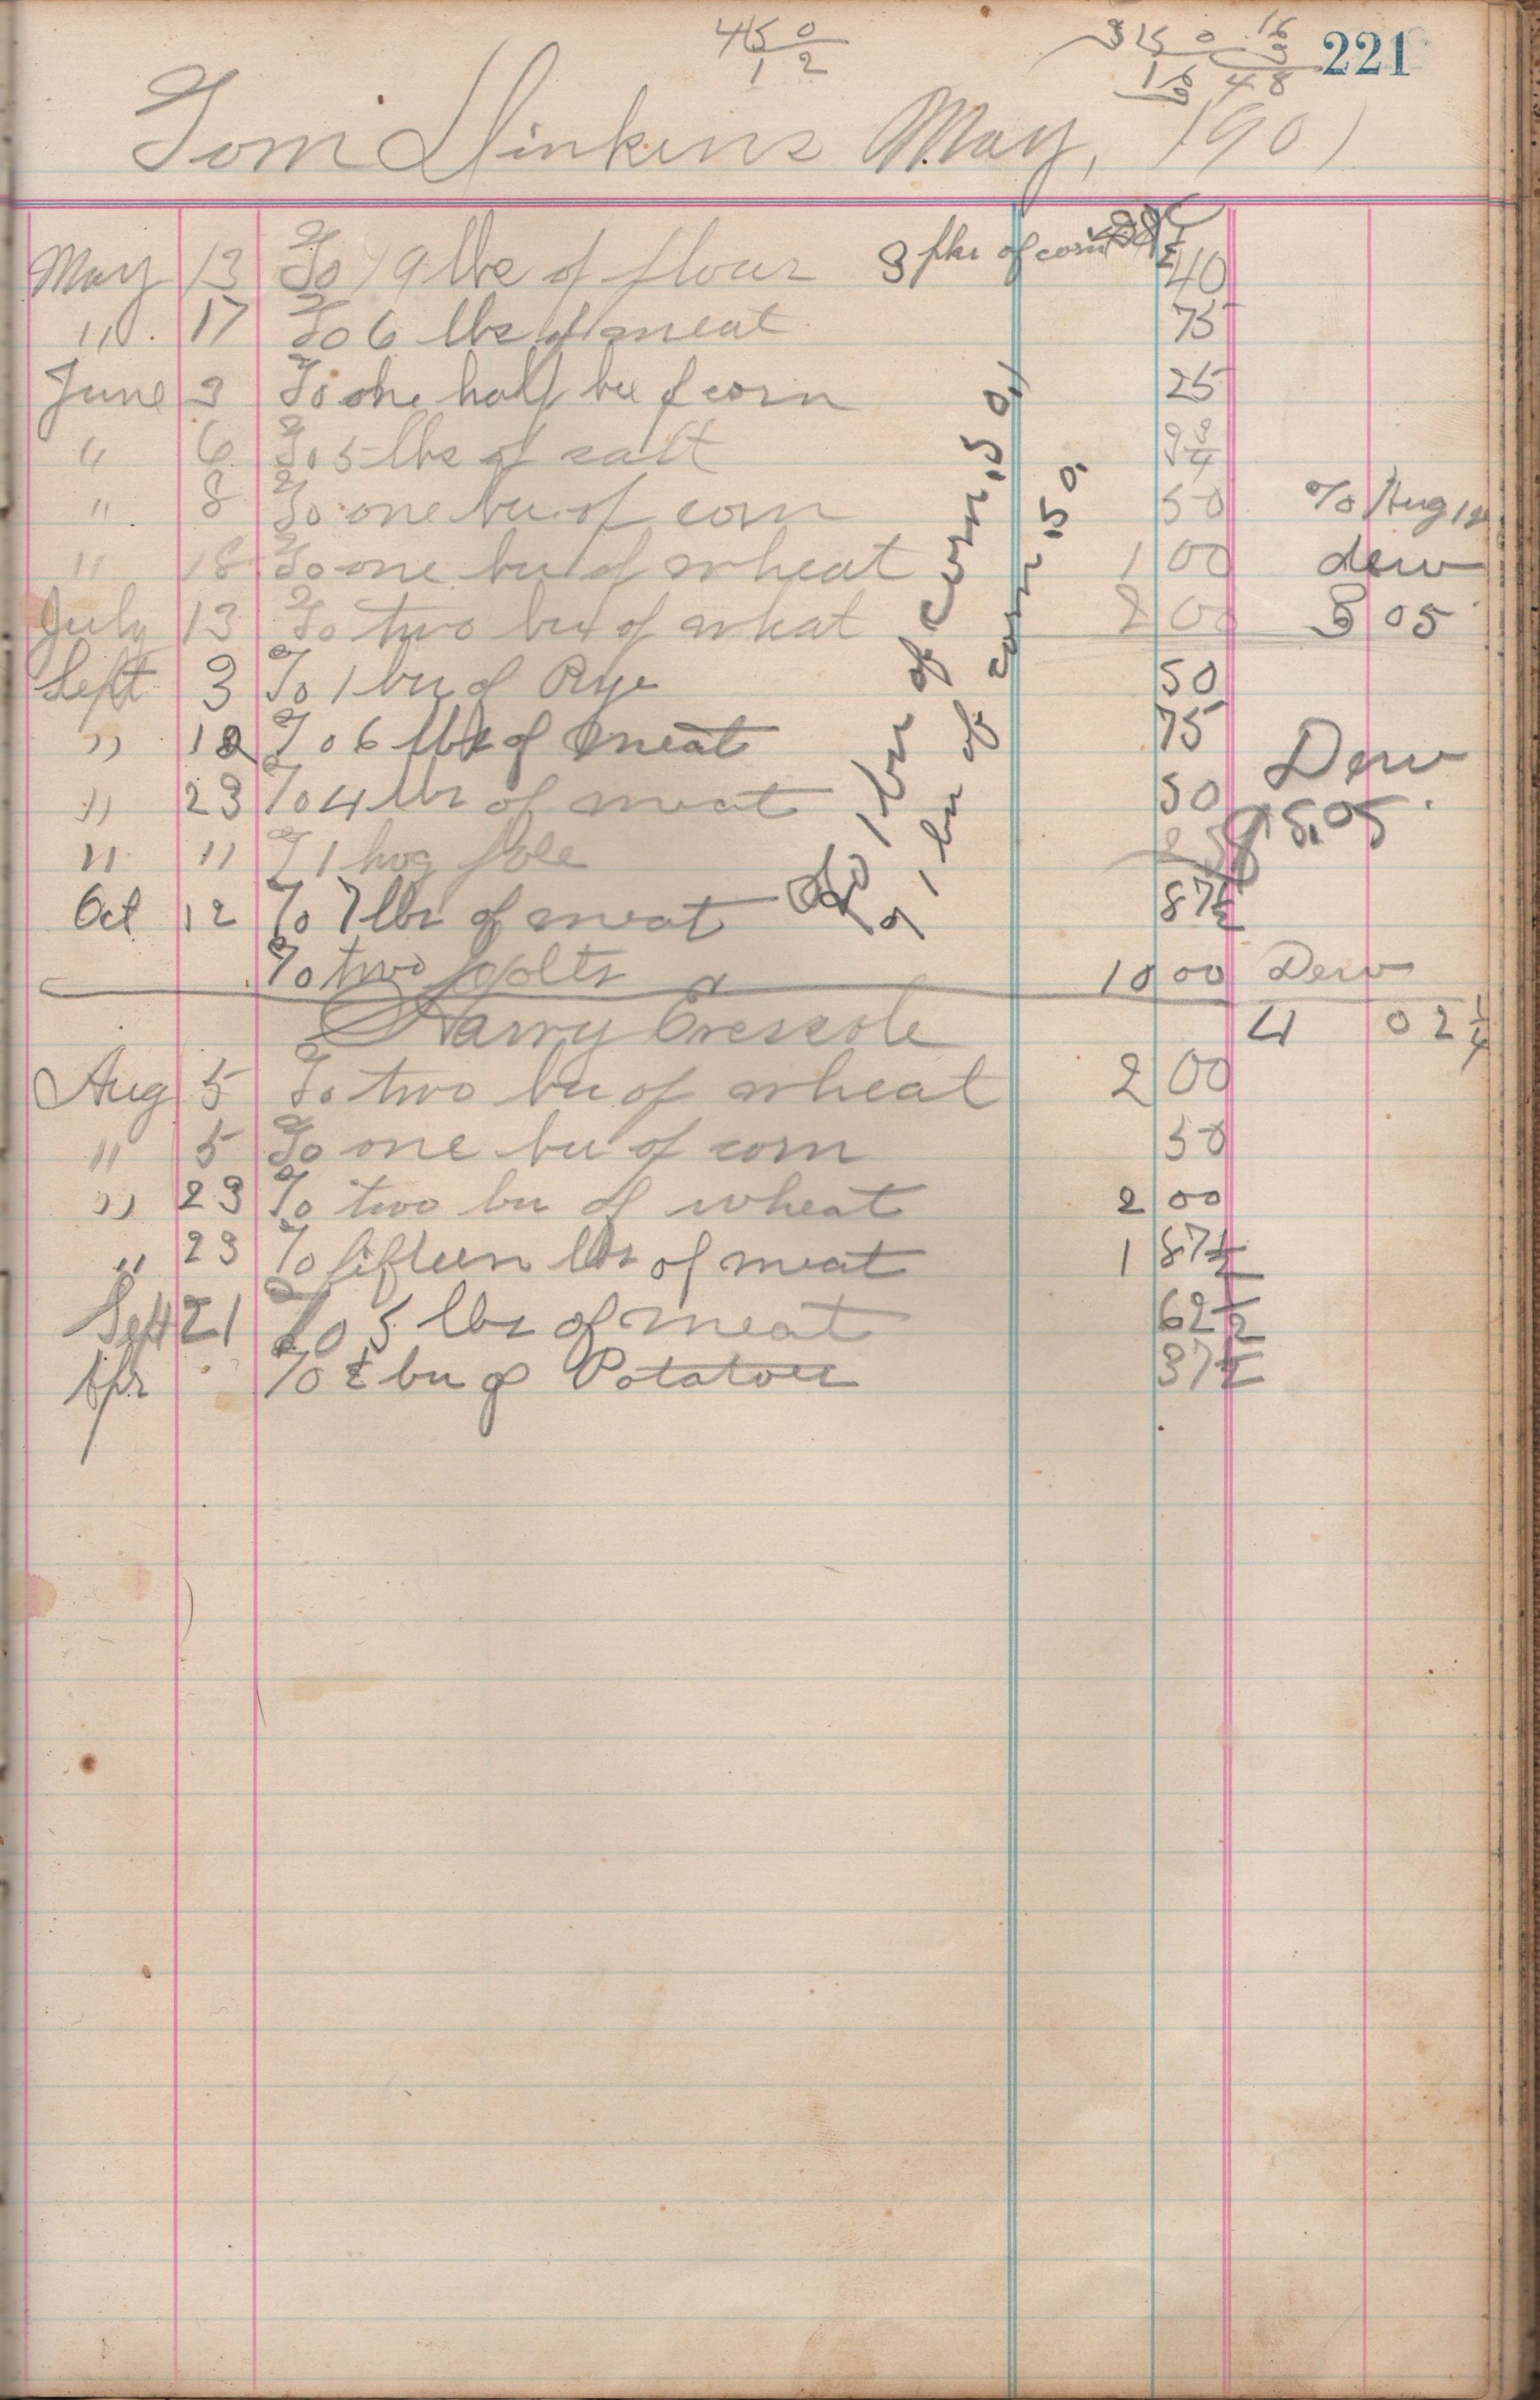 45 0
1 2
315 0
16
16
3
48
221
Tom Dinkins May, 1901
May 13 To 19 lbs of flour 3 pks of corn 40
" 17 To 6 lbs of meat 75
June 3 To one half bu of corn 25
" 6 To 5 lbs of salt 3 3/4
" 8 To one bu of corn 50 To Aug 12
" 18 To one bu of wheat 1 00 dew
July 13 To two bu of wheat 2 00 5 05
Sept 3 To 1 bu of Rye 50
" 12 To 6 lbs of meat 75 Dew
" 23 To 4 lbs of meat 50 $5.05
" " T 1 hog 25
Oct 12 To 7 lbs of meat 87 1/2
To two 10 00 Dew
4 02 1/4
To 1 bu of corn .50
" 1 bu of corn .50
Harry
Aug 5 To two bu of wheat 2 00
" 5 To one bu of corn 50
" 23 To two bu of wheat 2 00
" 23 To fifteen lbs of meat 1 87 1/2
Sept 21 To 5 lbs of meat 62 1/2
Apr To bu of Potatoes 37 1/2